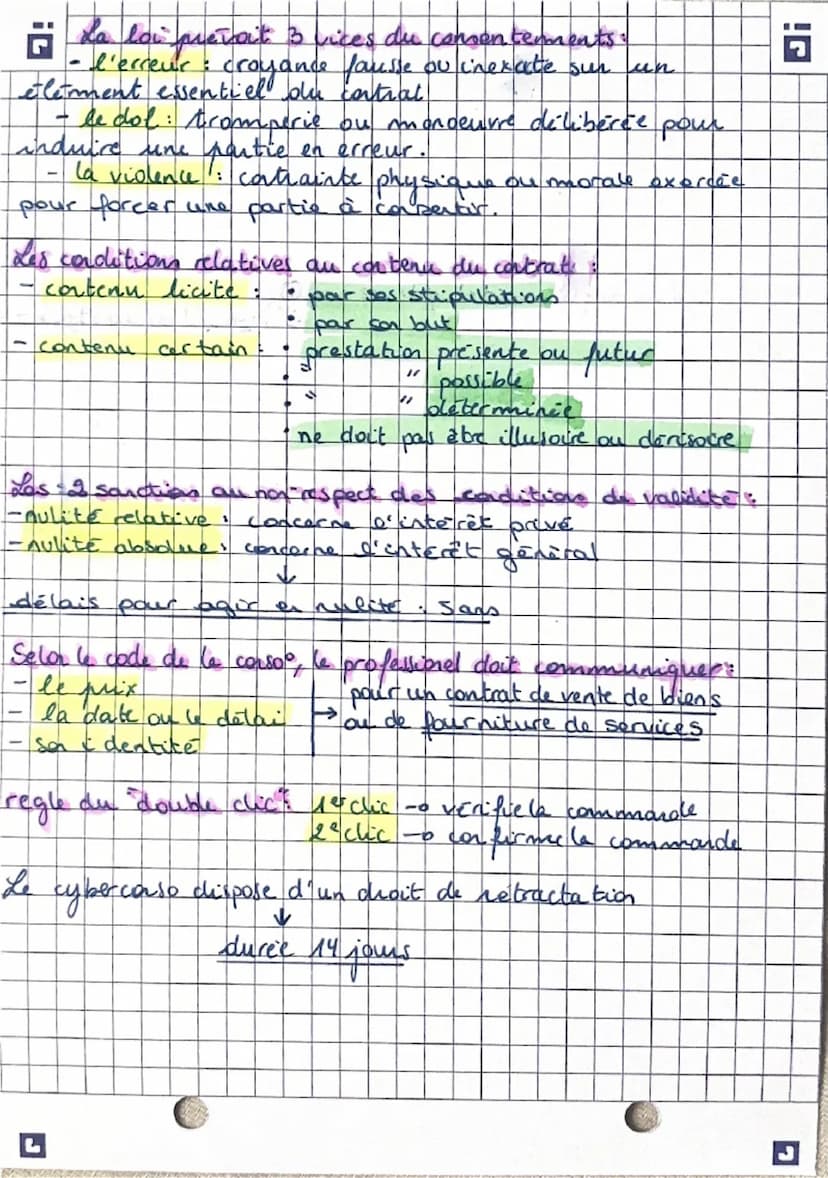 La loi prévoit 3 vices du consentements :
- l'erreur : croyande fausse ou inexate sur un
élément essentiel du contrat
- le dol : tromperie ou manoeuvre délibérée pour
induire une partie en erreur.
- la violence : contrainte physique ou morale exercée
pour forcer une partie à consentir.
Les conditions relatives au contenu du contrat :
- contenu licite : • par ses stipulations
• par son but
- contenu certain : • prestation présente ou futur
• " " possible
• " " déterminée
• ne doit pas être illusoire ou dérisoire
Les 2 sanction au non-respect des conditions de validité :
- nulité relative : concerne l'intérêt privé
- nulité absolue : concerne l'intérêt général
↓
délais pour agir en nulité : 5ans
Selon le code de la conso°, le professionel doit communiquer :
- le prix
pour un contrat de vente de biens
- la date ou le délai → ou de fourniture de services
- son identité
regle du "double clic" : 1er clic → vérifie la commande
2e clic → confirme la commande
Le cyberconso dispose d'un droit de rétractation
↓
durée 14 jours